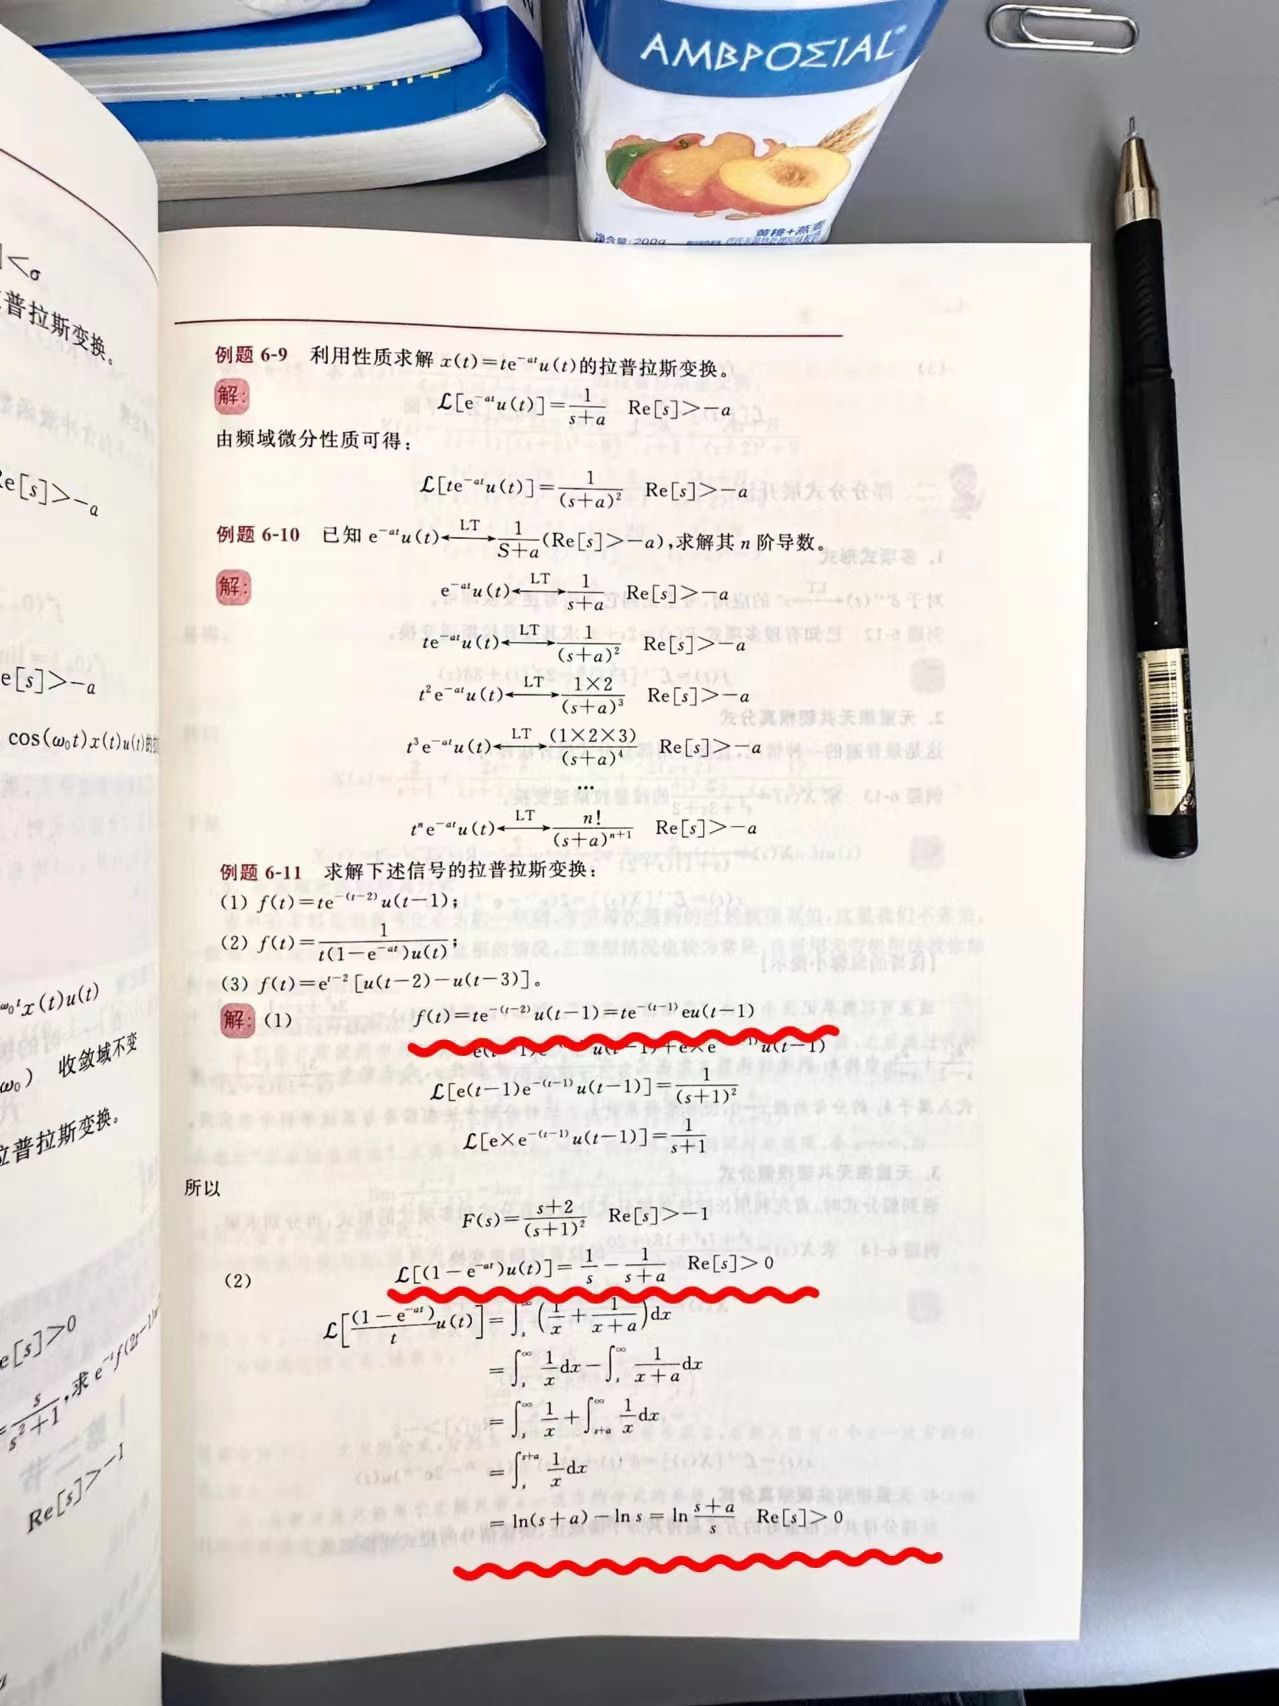 AMBPOΣIAL
黄桃+燕麦
净含量:200g
]<σ
拉普拉斯变换。
Re[s]>-a
e[s]>-a
cos(ω₀t)x(t)u(t)的
x(t)u(t)
收敛域不变
拉普拉斯变换。
e[s]>0
=s/(s²+1),求e⁻ᵗf(2t-1)
Re[s]>-1
例题 6-9 利用性质求解 x(t)=te^{-at}u(t)的拉普拉斯变换。
解:
ℒ[e^{-at}u(t)]=1/(s+a) Re[s]>-a
由频域微分性质可得:
ℒ[te^{-at}u(t)]=1/(s+a)² Re[s]>-a
例题 6-10 已知 e^{-at}u(t)←LT→1/(S+a)(Re[s]>-a),求解其 n 阶导数。
解:
e^{-at}u(t)←LT→1/(s+a) Re[s]>-a
te^{-at}u(t)←LT→1/(s+a)² Re[s]>-a
t²e^{-at}u(t)←LT→1×2/(s+a)³ Re[s]>-a
t³e^{-at}u(t)←LT→(1×2×3)/(s+a)⁴ Re[s]>-a
…
tⁿe^{-at}u(t)←LT→n!/(s+a)^{n+1} Re[s]>-a
例题 6-11 求解下述信号的拉普拉斯变换:
(1) f(t)=te^{-(t-2)}u(t-1);
(2) f(t)=1/(t(1-e^{-at})u(t));
(3) f(t)=e^{t-2}[u(t-2)-u(t-3)]。
解:(1) f(t)=te^{-(t-2)}u(t-1)=te^{-(t-1)}eu(t-1)
e(t-1)e u(t-1)+e×e u(t-1)
ℒ[e(t-1)e^{-(t-1)}u(t-1)]=1/(s+1)²
ℒ[e×e^{-(t-1)}u(t-1)]=1/(s+1)
所以
F(s)=(s+2)/(s+1)² Re[s]>-1
(2) ℒ[(1-e^{-at})u(t)]=1/s-1/(s+a) Re[s]>0
ℒ[(1-e^{-at})/t u(t)]=∫_s^∞(1/x+1/(x+a))dx
=∫_s^∞ 1/x dx-∫_s^∞ 1/(x+a) dx
=∫_s^∞ 1/x+∫_{s+a}^∞ 1/x dx
=∫_s^{s+a} 1/x dx
=ln(s+a)-ln s=ln (s+a)/s Re[s]>0